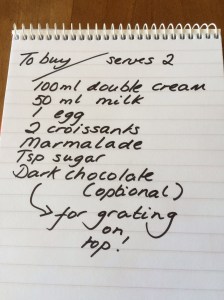 To buy / serves 2
100ml double cream
50 ml milk
1 egg
2 croissants
Marmalade
Tsp sugar
Dark chocolate
(optional)
for grating
on
top!